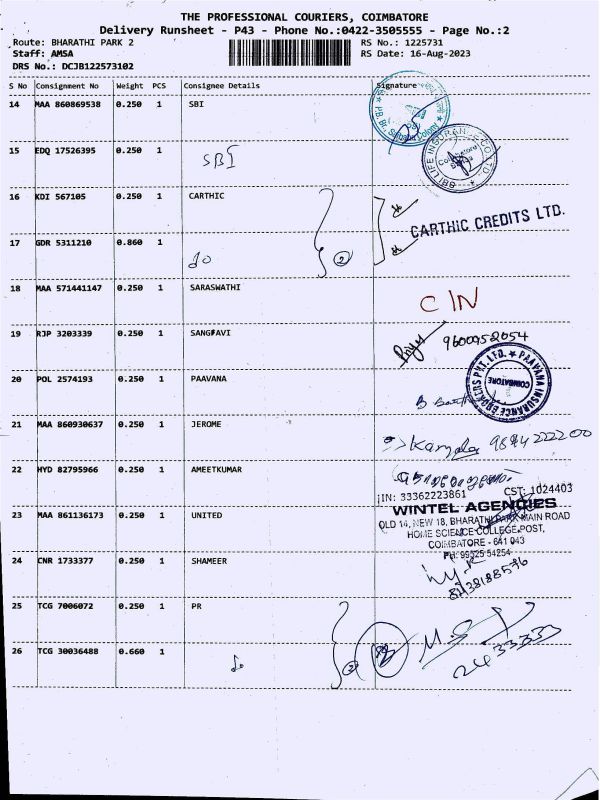 THE PROFESSIONAL COURIERS, COIMBATORE
Delivery Runsheet - P43 - Phone No.:0422-3505555 - Page No.:2
Route: BHARATHI PARK 2 RS No.: 1225731
Staff: AMSA RS Date: 16-Aug-2023
DRS No.: DCJB122573102
S No Consignment No Weight PCS Consignee Details Signature
14 MAA 860869538 0.250 1 SBI
15 EDQ 17526395 0.250 1 SBI
SBI LIFE INSURANCE CO LTD
Coimbatore
16 KDI 567105 0.250 1 CARTHIC
CARTHIC CREDITS LTD.
17 GDR 5311210 0.860 1 do 2
18 MAA 571441147 0.250 1 SARASWATHI
CIN
19 RJP 3203339 0.250 1 SANGPAVI
9600952054
20 POL 2574193 0.250 1 PAAVANA
PAAVANA INSURANCE BROKERS PVT. LTD.
COIMBATORE
21 MAA 860930637 0.250 1 JEROME
9894222200
22 HYD 82795966 0.250 1 AMEETKUMAR
TIN: 33362223861 CST: 1024403
23 MAA 861136173 0.250 1 UNITED
WINTEL AGENCIES
OLD 14, NEW 18, BHARATHI PARK MAIN ROAD
HOME SCIENCE COLLEGE POST,
COIMBATORE - 641 043
PH: 99525 54254
24 CNR 1733377 0.250 1 SHAMEER
8438188596
25 TCG 7006072 0.250 1 PR
26 TCG 30036488 0.660 1 do 2
2433333